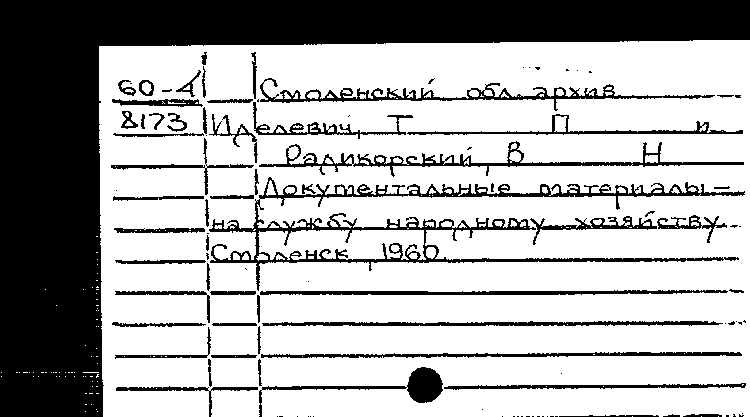 60-4 Смоленский обл. архив
8173 Иделевич, Т П и
Радикорский, В Н
Документальные материалы –
на службу народному хозяйству
Смоленск, 1960.